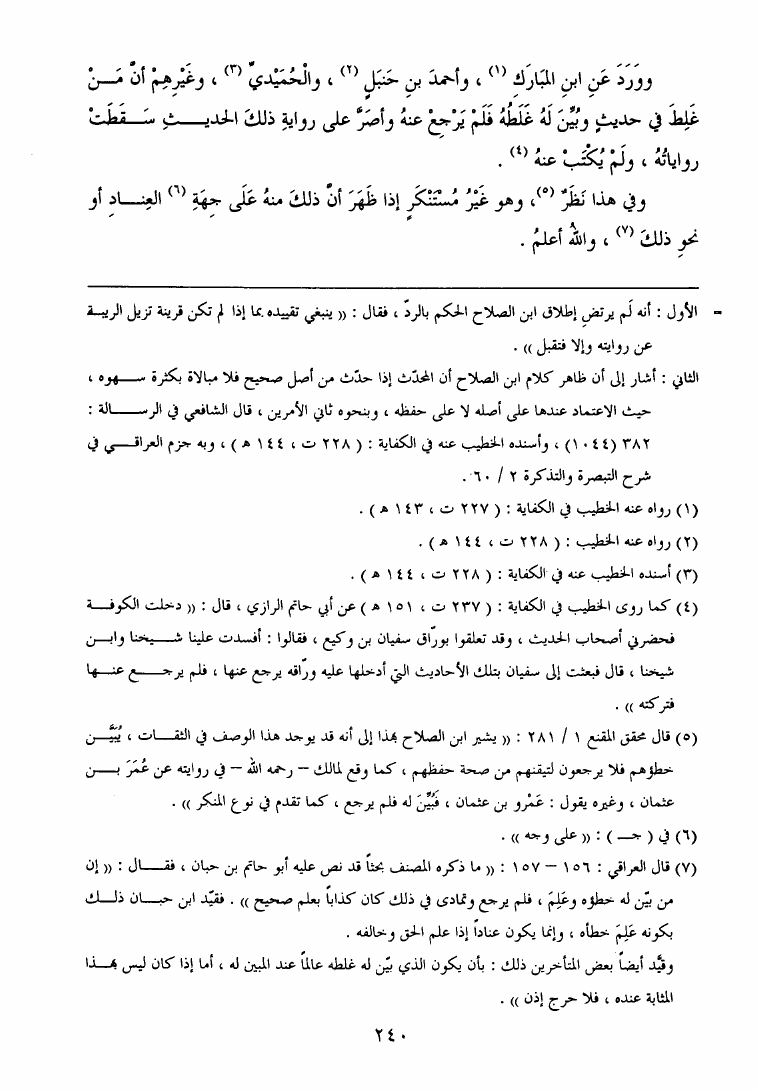 ووَرَدَ عَنِ ابنِ المُبَارَكِ (١) ، وأحمدَ بنِ حَنبَلٍ (٢) ، والْحُمَيْديِّ (٣) ، وغَيْرِهِمْ أنَّ مَـــنْ
غَلِطَ في حديثٍ وبُيِّنَ لَهُ غَلَطُهُ فَلَمْ يَرْجِعْ عنهُ وأصَرَّ على روايةِ ذلكَ الحديـــثِ سَـقَطَتْ
رواياتُهُ ، ولَمْ يُكْتَبْ عنهُ (٤) .
وفي هذا نَظَرٌ (٥)، وهو غَيْرُ مُسْتَنْكَرٍ إذا ظَهَرَ أنَّ ذلكَ منهُ عَلَى جِهَةِ (٦) العِنـــادِ أو
نحوِ ذلكَ (٧) ، واللهُ أعلمُ .
= الأول : أنه لَم يرتضِ إطلاق ابن الصلاح الحكم بالردّ ، فقال : (( ينبغي تقييده بما إذا لم تكن قرينة تزيل الريبـة
عن روايته وإلا فتقبل )) .
الثاني : أشار إلى أن ظاهر كلام ابن الصلاح أن المحدّث إذا حدّث من أصل صحيح فلا مبالاة بكثرة ســهوه ،
حيث الاعتماد عندها على أصله لا على حفظه ، وبنحوه ثاني الأمرين ، قال الشافعي في الرســـالة :
٣٨٢ (١٠٤٤) ، وأسنده الخطيب عنه في الكفاية : ( ٢٢٨ ت ، ١٤٤ ه‍ ) ، وبه جزم العراقـــي في
شرح التبصرة والتذكرة ٢ / ٦٠.
(١) رواه عنه الخطيب في الكفاية : ( ٢٢٧ ت ، ١٤٣ ه‍ ) .
(٢) رواه عنه الخطيب : ( ٢٢٨ ت ، ١٤٤ ه‍ ) .
(٣) أسنده الخطيب عنه في الكفاية : ( ٢٢٨ ت ، ١٤٤ ه‍ ) .
(٤) كما روى الخطيب في الكفاية : ( ٢٣٧ ت ، ١٥١ ه‍ ) عن أبي حاتم الرازي ، قال : (( دخلت الكوفـة
فحضرني أصحاب الحديث ، وقد تعلقوا بورّاق سفيان بن وكيع ، فقالوا : أفسدت علينا شــيخنا وابــن
شيخنا ، قال فبعثت إلى سفيان بتلك الأحاديث التي أدخلها عليه ورّاقه يرجع عنها ، فلم يرجـــع عنــها
فتركته )) .
(٥) قال محقق المقنع ١ / ٢٨١ : (( يشير ابن الصلاح بهذا إلى أنه قد يوجد هذا الوصف في الثقــات ، يُبَيَّــن
خطؤهم فلا يرجعون لتيقنهم من صحة حفظهم ، كما وقع لمالك – رحمه الله – في روايته عن عُمَرَ بـــن
عثمان ، وغيره يقول : عَمْرو بن عثمان ، فَبُيِّنَ له فلم يرجع ، كما تقدم في نوع المنكر )) .
(٦) في ( جـ ) : (( على وجه )) .
(٧) قال العراقي : ١٥٦ – ١٥٧ : (( ما ذكره المصنف بحثاً قد نص عليه أبو حاتم بن حبان ، فقـــال : (( إن
من بيّن له خطؤه وعَلِمَ ، فلم يرجع وتمادى في ذلك كان كذاباً بعلم صحيح )) . فقيّد ابن حبــان ذلــك
بكونه عَلِمَ خطأه ، وإنما يكون عناداً إذا علم الحق وخالفه .
وقيّد أيضاً بعض المتأخرين ذلك : بأن يكون الذي بيّن له غلطه عالماً عند المبين له ، أما إذا كان ليس بهــذا
المثابة عنده ، فلا حرج إذن )) .
٢٤٠